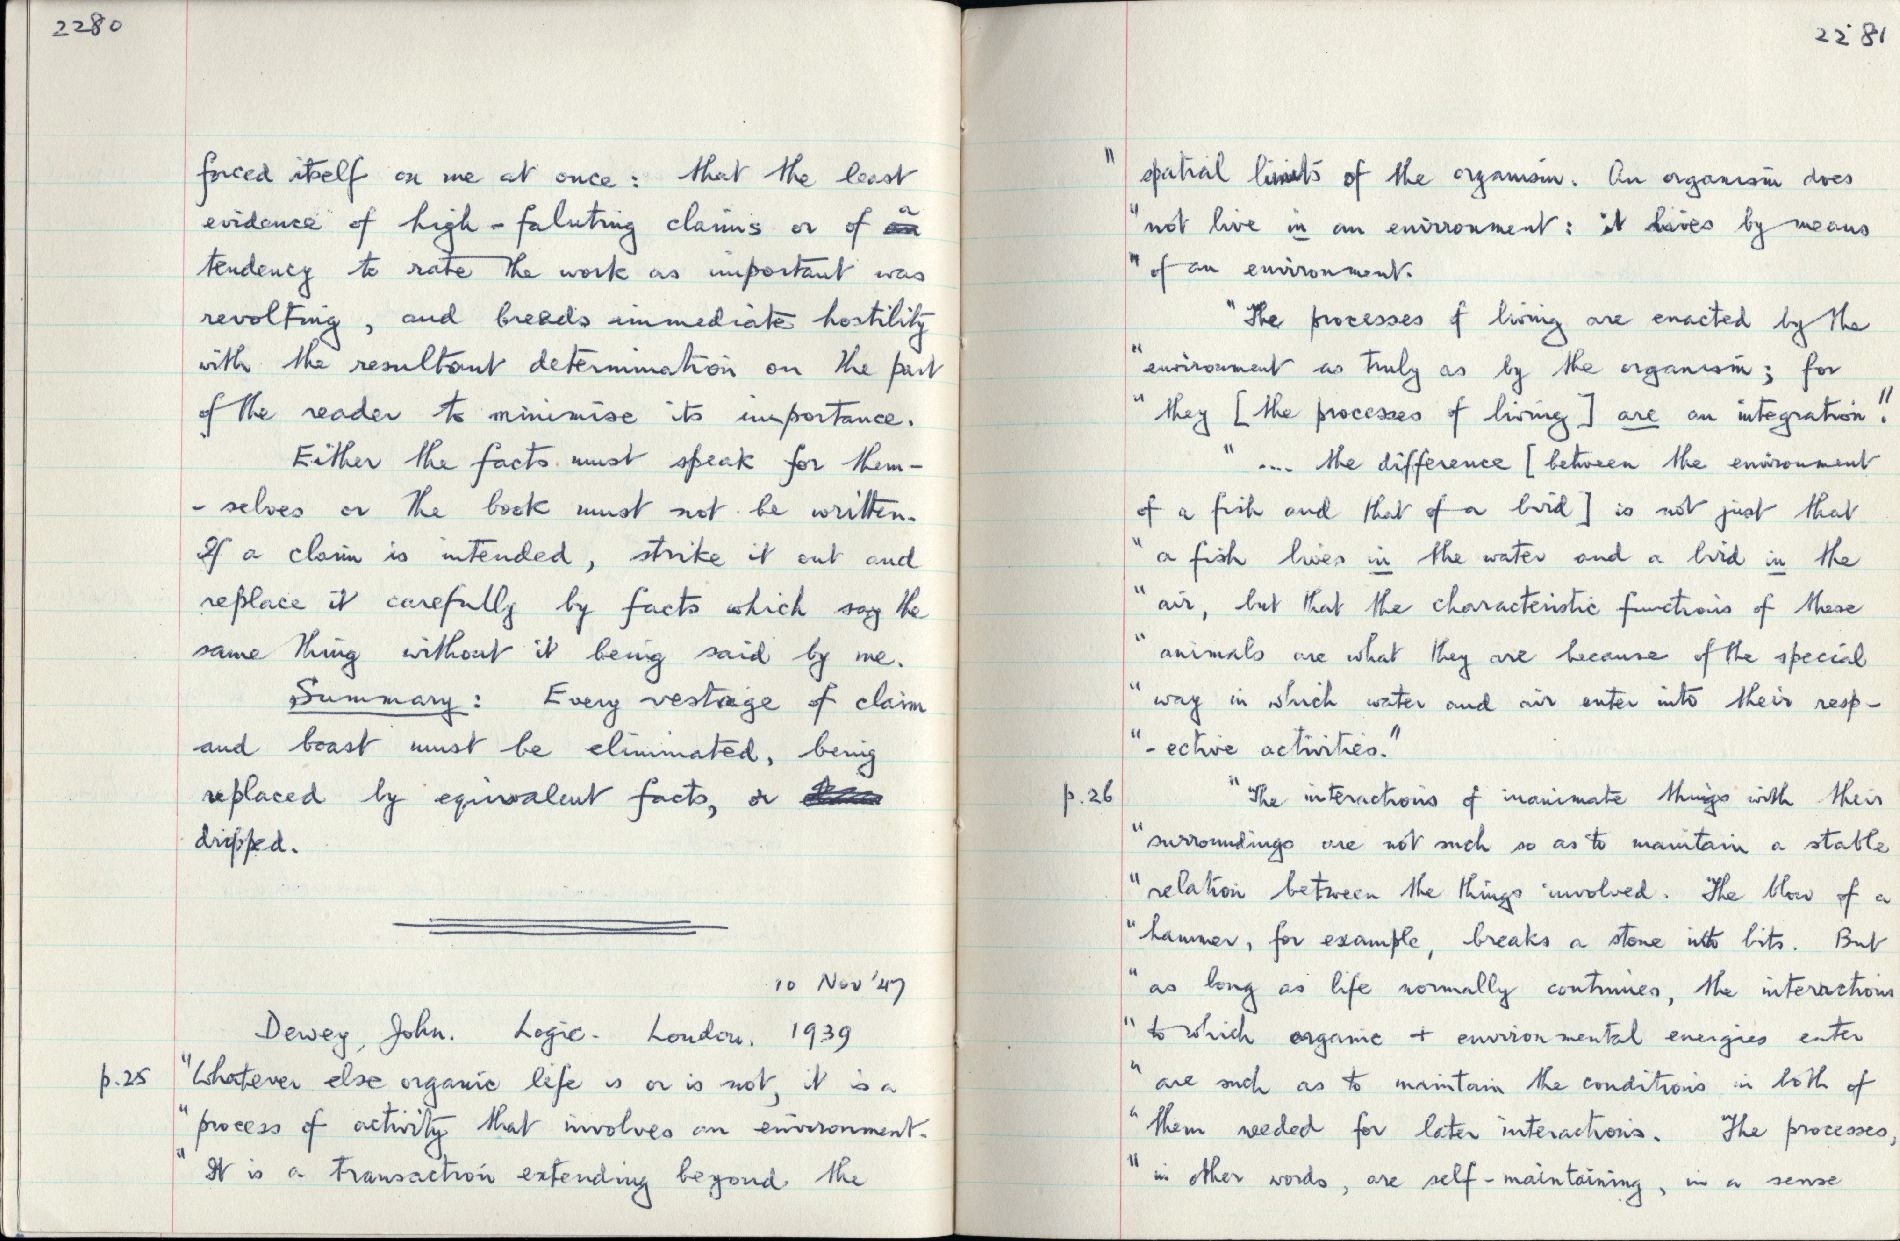 2280
forced itself on me at once: that the least
evidence of high-faluting claims or of a
tendency to rate the work as important was
revolting, and breeds immediate hostility
with the resultant determination on the part
of the reader to minimise its importance.
Either the facts must speak for them-
-selves or the book must not be written.
If a claim is intended, strike it out and
replace it carefully by facts which say the
same thing without it being said by me.
Summary: Every vestige of claim
and boast must be eliminated, being
replaced by equivalent facts, or
dripped.
10 Nov '47
Dewey, John. Logic. London. 1939
p.25 "Whatever else organic life is or is not, it is a
"process of activity that involves an environment.
"It is a transaction extending beyond the
2281
"spatial limits of the organism. An organism does
"not live in an environment: it lives by means
"of an environment.
"The processes of living are enacted by the
"environment as truly as by the organism; for
"they [the processes of living] are an integration".
"... the difference [between the environment
of a fish and that of a bird] is not just that
"a fish lives in the water and a bird in the
"air, but that the characteristic functions of these
"animals are what they are because of the special
"way in which water and air enter into their resp-
"-ective activities."
p.26 "The interactions of inanimate things with their
"surroundings are not such so as to maintain a stable
"relation between the things involved. The blow of a
"hammer, for example, breaks a stone into bits. But
"as long as life normally continues, the interactions
"to which organic + environmental energies enter
"are such as to maintain the conditions in both of
"them needed for later interactions. The processes,
"in other words, are self-maintaining, in a sense